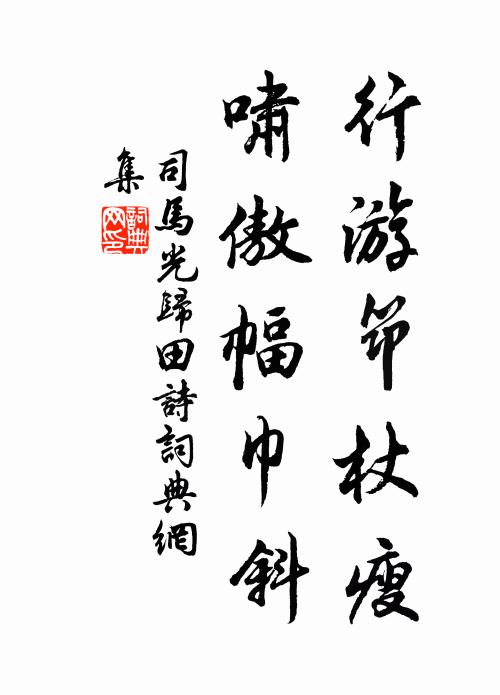 行游笻杖瘦
啸傲幅巾斜
司馬光歸田詩詞典網
集
詞典网印